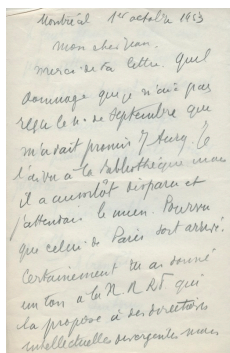 Montréal 1er octobre 1953
Mon cher Jean.
Merci de ta lettre. Quel
dommage que je n'aie pas
reçu le no de Septembre que
m'avait promis D. Aury. Je
l'ai vu à la bibliothèque mais
il a aussitôt disparu et
j'attendais le mien. Pourvu
que celui de Paris soit arrivé.
Certainement tu as donné
un ton à la N R R F qui
la propose à des directions
intellectuelles divergentes mais